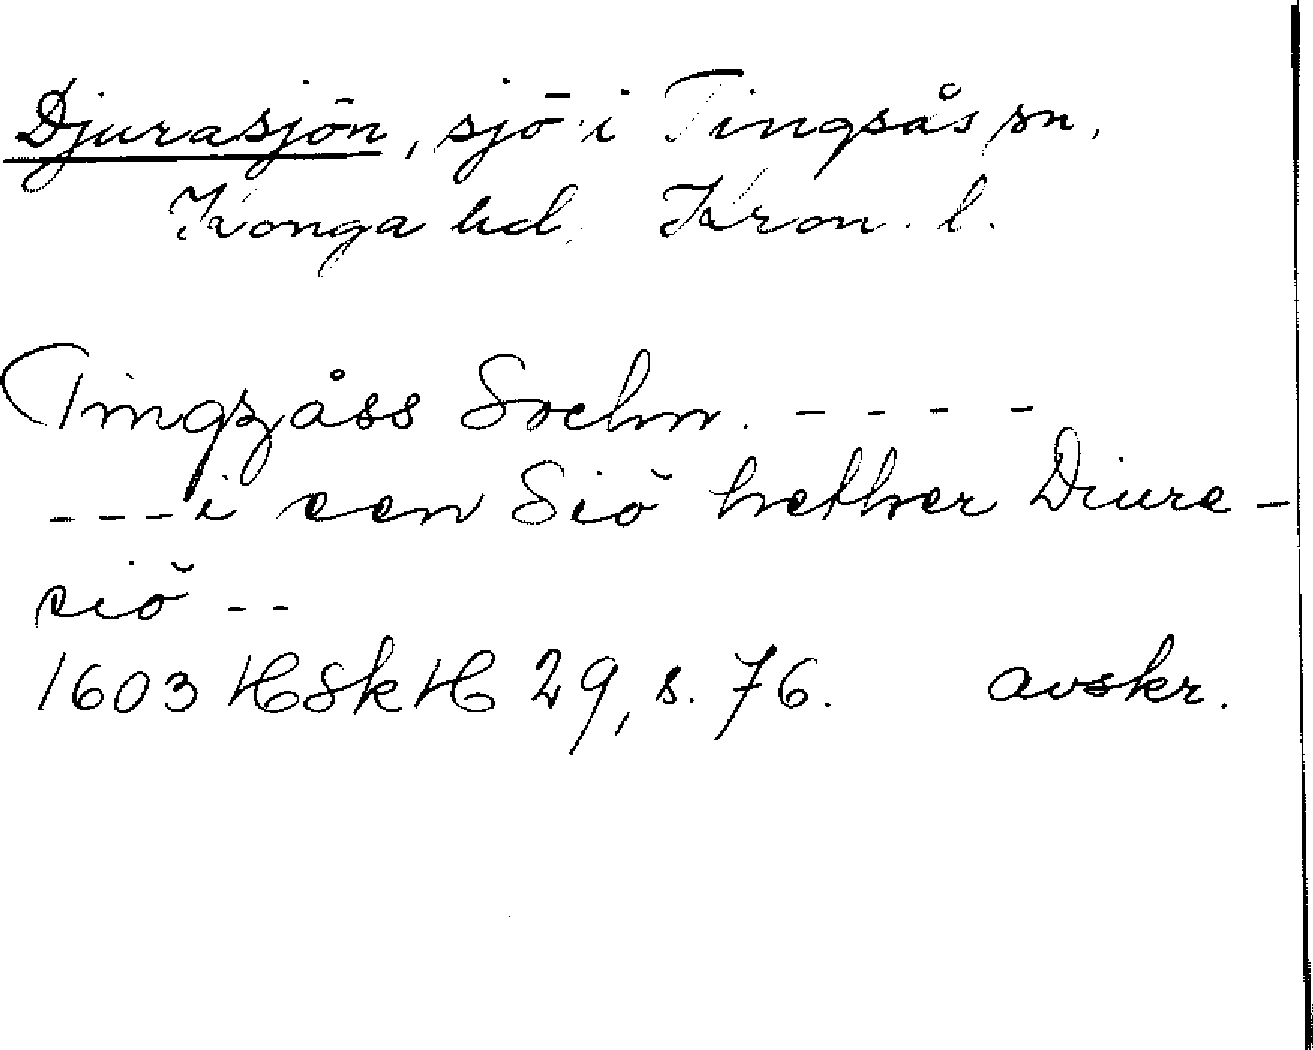 Djurasjön, sjö i Tingsås sn,
Konga hd. Kron. l.
Tingzåss Sochn. - - - -
- - - i een Siö hether Diure-
siö - -
1603 HSkH 29, s. 76. avskr.